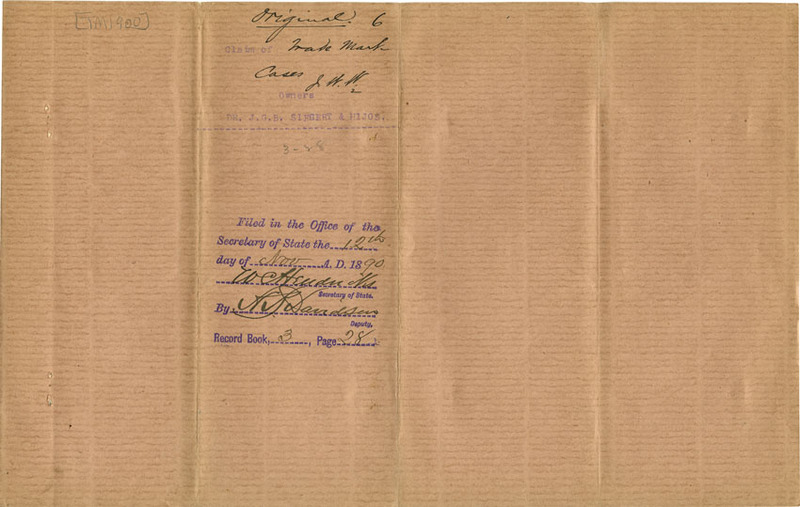 [TM1900]
Original. 6
Claim of Trade Mark
Cases J.W.W.
2
Owners
DR. J.G.B. SIEGERT & HIJOS.
3-28
Filed in the Office of the
Secretary of State the 12th
day of Nov A. D. 1890
W C Hendricks
Secretary of State.
By
Deputy.
Record Book, 3, Page 28